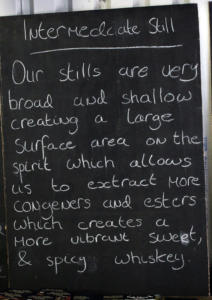 Intermediate Still
Our stills are very
broad and shallow
creating a large
surface area on the
spirit which allows
us to extract more
congeners and esters
which creates a
more vibrant sweet,
& spicy whiskey.